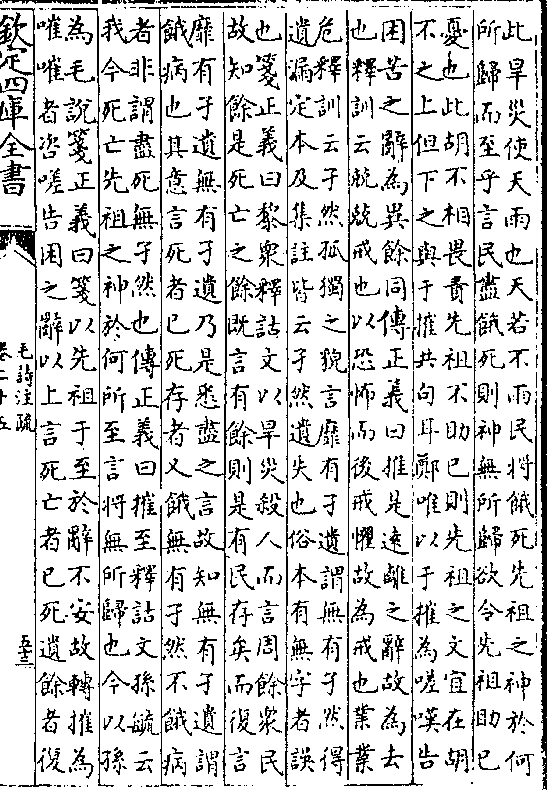 此旱災使天雨也天若不雨民將餓死先祖之神於何
所歸而至乎言民盡餓死則神無所歸欲令先祖助己
憂也此胡不相畏責先祖不助己則先祖之文宜在胡
不之上但下之與于摧共句耳鄭唯以于摧為嗟嘆告
困苦之辭為異餘同傳正義曰推是遠離之辭故為去
也釋訓云兢兢戒也以恐怖而後戒懼故為戒也業業
危釋訓云孑然孤獨之貌言靡有孑遺謂無有孑然得
遺漏定本及集註皆云孑然遺失也俗本有無字者誤
也箋正義曰黎衆釋詁文以旱災殺人而言周餘衆民
故知餘是死亡之餘既言有餘則是有民存矣而復言
靡有孑遺無有孑遺乃是悉盡之言故知無有孑遺謂
餓病也其意言死者已死存者又餓無有孑然不餓病
者非謂盡死無孑然也傳正義曰摧至釋詁文孫毓云
我今死亡先祖之神於何所至言將無所歸也今以孫
為毛說箋正義曰箋以先祖于至於辭不安故轉摧為
嗺嗺者咨嗟告困之辭以上言死亡者已死遺餘者復
欽定四庫全書
毛詩注疏
卷二十五
五十三